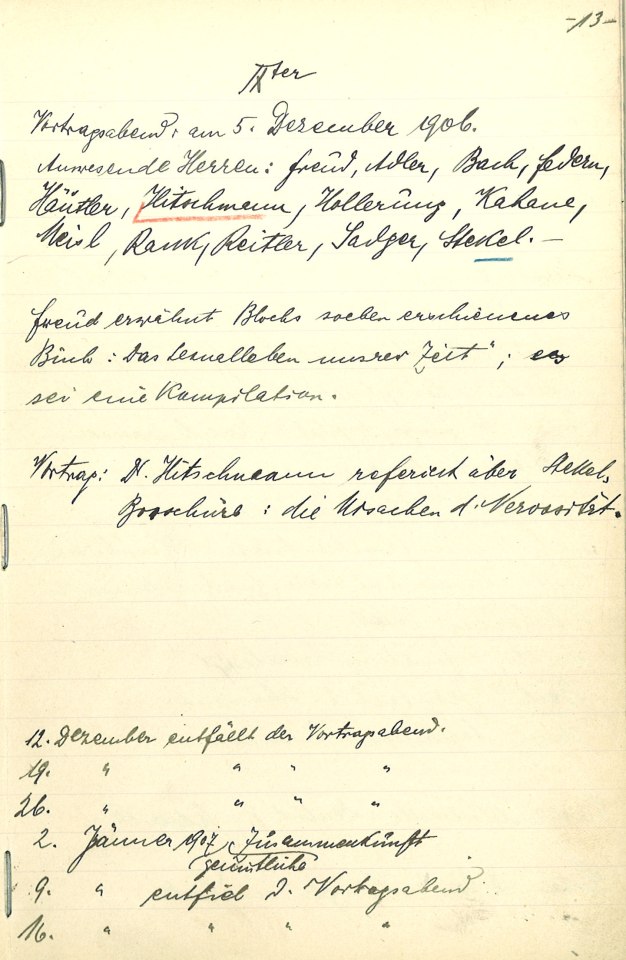 -13-
IXter
Vortragsabend: am 5. Dezember 1906.
Anwesende Herren: Freud, Adler, Bach, Federn,
Häutler, Hitschmann, Hollerung, Kahane,
Meisl, Rank, Reitler, Sadger, Stekel. —
Freud erwähnt Blochs soeben erschienenes
Buch: Das Sexualleben unsrer Zeit"; es
sei eine Kompilation.
Vortrag: Dr. Hitschmann referiert über Stekels
Broschüre: die Ursachen d. Nervosität.
12. Dezember entfällt der Vortragsabend.
19. " " " "
26. " " " "
2. Jänner 1907 Zusammenkunft
gemütliche
9. " entfiel d. Vortragsabend
16. " " " "